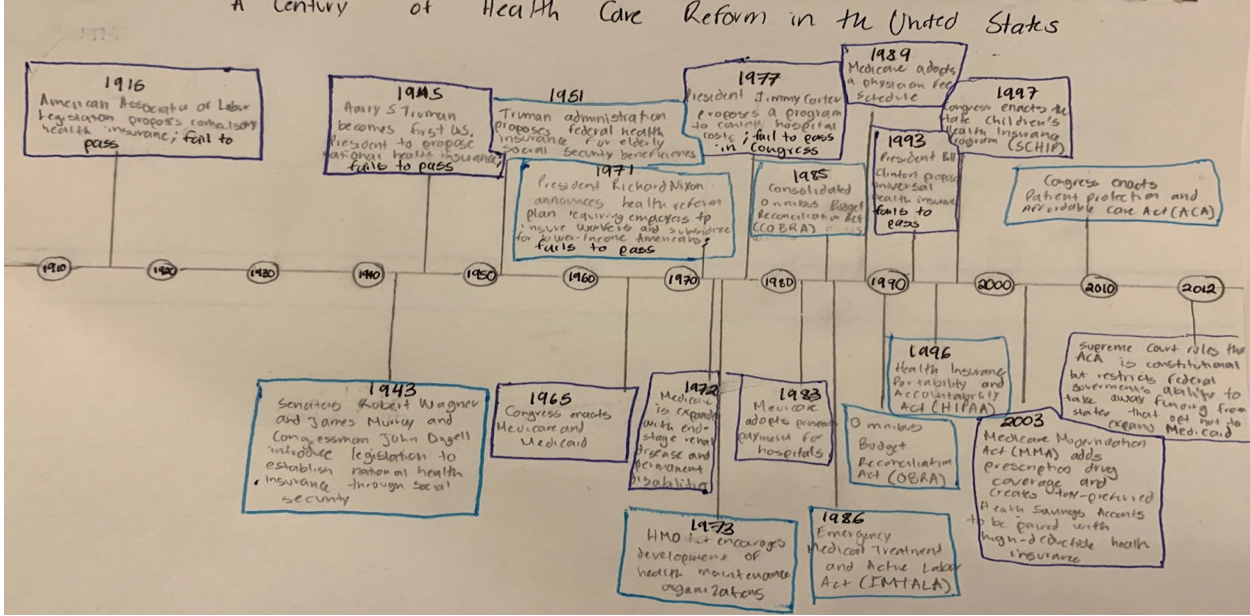 A Century of Health Care Reform in the United States
1915
American Associatio of Labor
legislation proposes
health insurance; fail to
pass
1945
Harry S Truman
becomes first U.S.
President to propose
national health insurance;
fails to pass
1951
Truman administration
proposes federal health
insurance for elderly
social security beneficiaries
1971
President Richard Nixon
announces health reform
plan requiring employers to
insure workers and subsidize
for lower-income Americans;
fails to pass
1977
President Jimmy Carter
proposes a program
to control hospital
costs; fail to pass
in Congress
1985
Consolidated
Omnibus Budget
Reconciliation Act
(COBRA)
1989
Medicare adopts
a physician fee
schedule
1993
President Bill
Clinton propose
universal
health insurance
fails to
pass
1997
Congress enacts the
State Children's
Health Insurance
Program (SCHIP)
Congress enacts
Patient protection and
Affordable Care Act (ACA)
1910 1920 1930 1940 1950 1960 1970 1980 1990 2000 2010 2012
1943
Senators Robert Wagner
and James Murray and
Congressman John Dingell
introduce legislation to
establish national health
insurance through social
security
1965
Congress enacts
Medicare and
Medicaid
1972
Medicare
is expand
with end-
stage renal
disease and
permanent
disabilities
1973
HMO encourages
development of
health maintenance
organizations
1983
Medicare
adopts
payment for
hospitals
1986
Emergency
Medical Treatment
and Active Labor
Act (EMTALA)
Omnibus
Budget
Reconciliation
Act (OBRA)
1996
Health Insurance
Portability and
Accountability
Act (HIPAA)
2003
Medicare Modernization
Act (MMA) adds
prescription drug
coverage and
creates tax-preferred
Health Savings Accounts
to be paired with
high-deductible health
insurance
Supreme Court rules that
ACA is constitutional
but restricts federal
government's ability to
take away funding from
states that opt not to
expand Medicaid